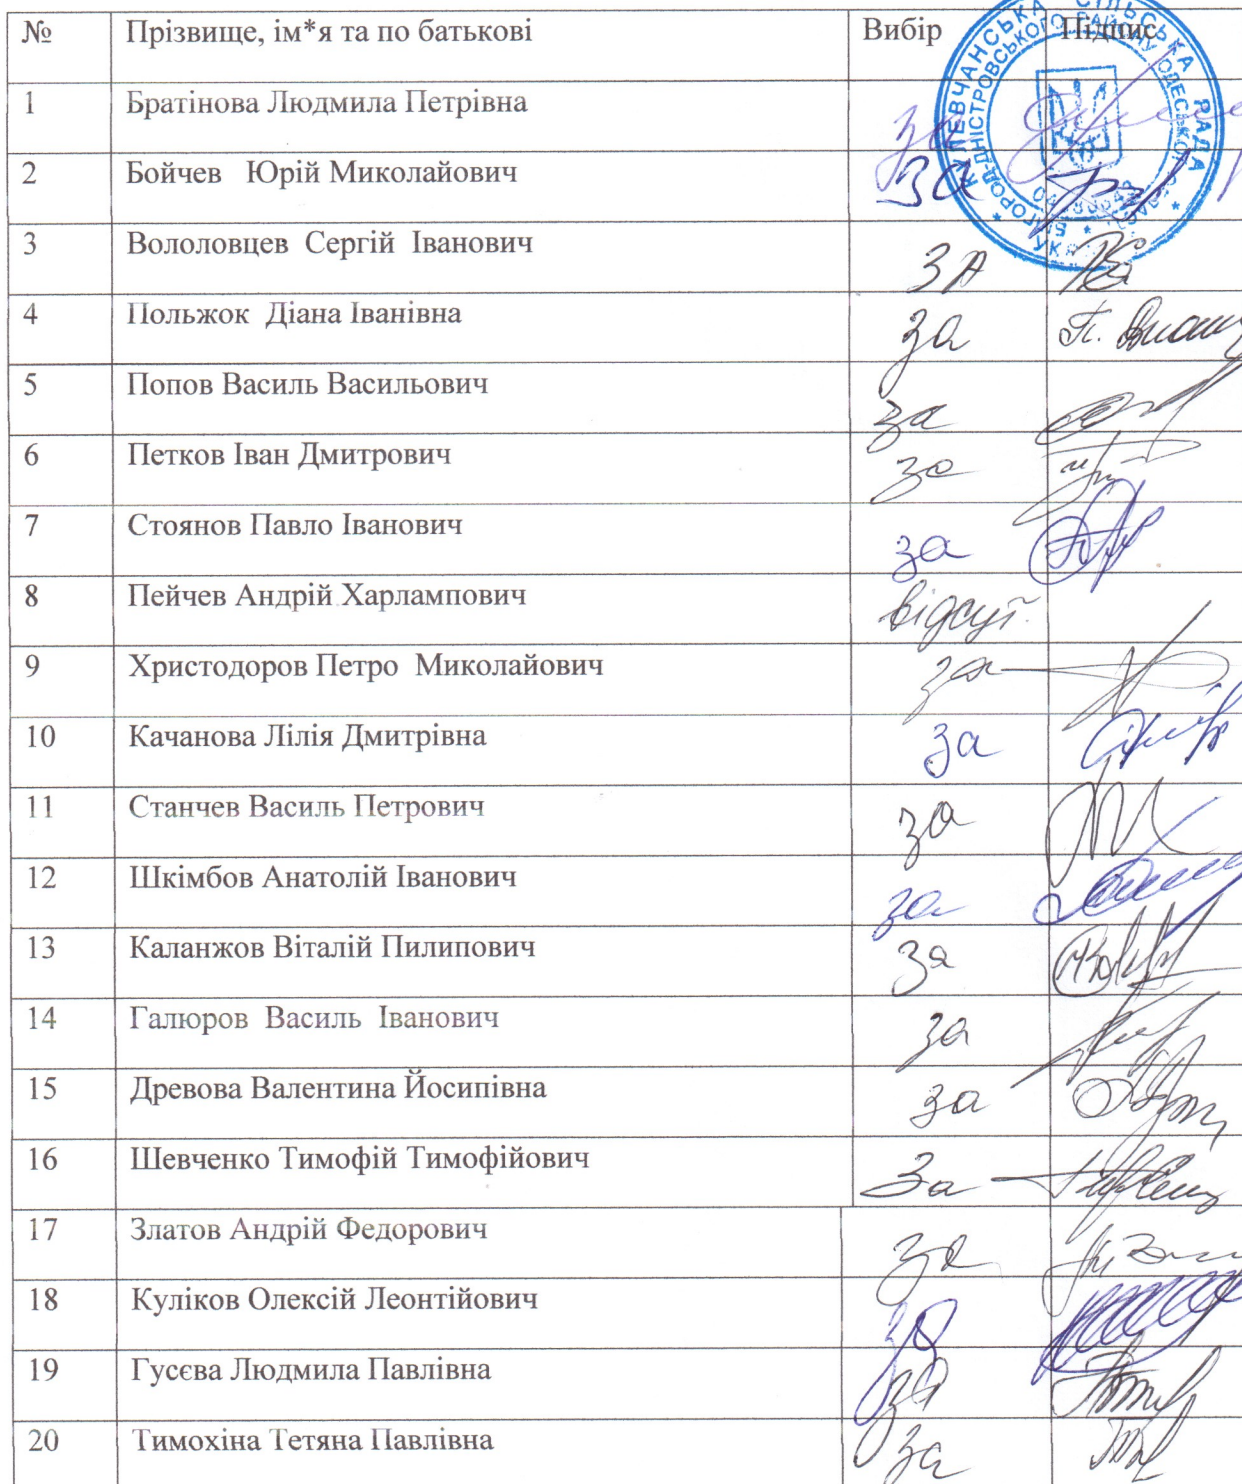 № Прізвище, ім*я та по батькові Вибір Підпис
1 Братінова Людмила Петрівна за
2 Бойчев Юрій Миколайович за
3 Вололовцев Сергій Іванович за
4 Польжок Діана Іванівна за
5 Попов Василь Васильович за
6 Петков Іван Дмитрович за
7 Стоянов Павло Іванович за
8 Пейчев Андрій Харлампович відсут.
9 Христодоров Петро Миколайович за
10 Качанова Лілія Дмитрівна за
11 Станчев Василь Петрович за
12 Шкімбов Анатолій Іванович за
13 Каланжов Віталій Пилипович за
14 Галюров Василь Іванович за
15 Древова Валентина Йосипівна за
16 Шевченко Тимофій Тимофійович За
17 Златов Андрій Федорович за
18 Куліков Олексій Леонтійович за
19 Гусєва Людмила Павлівна за
20 Тимохіна Тетяна Павлівна за
КУЛЕВЧАНСЬКА СІЛЬСЬКА РАДА